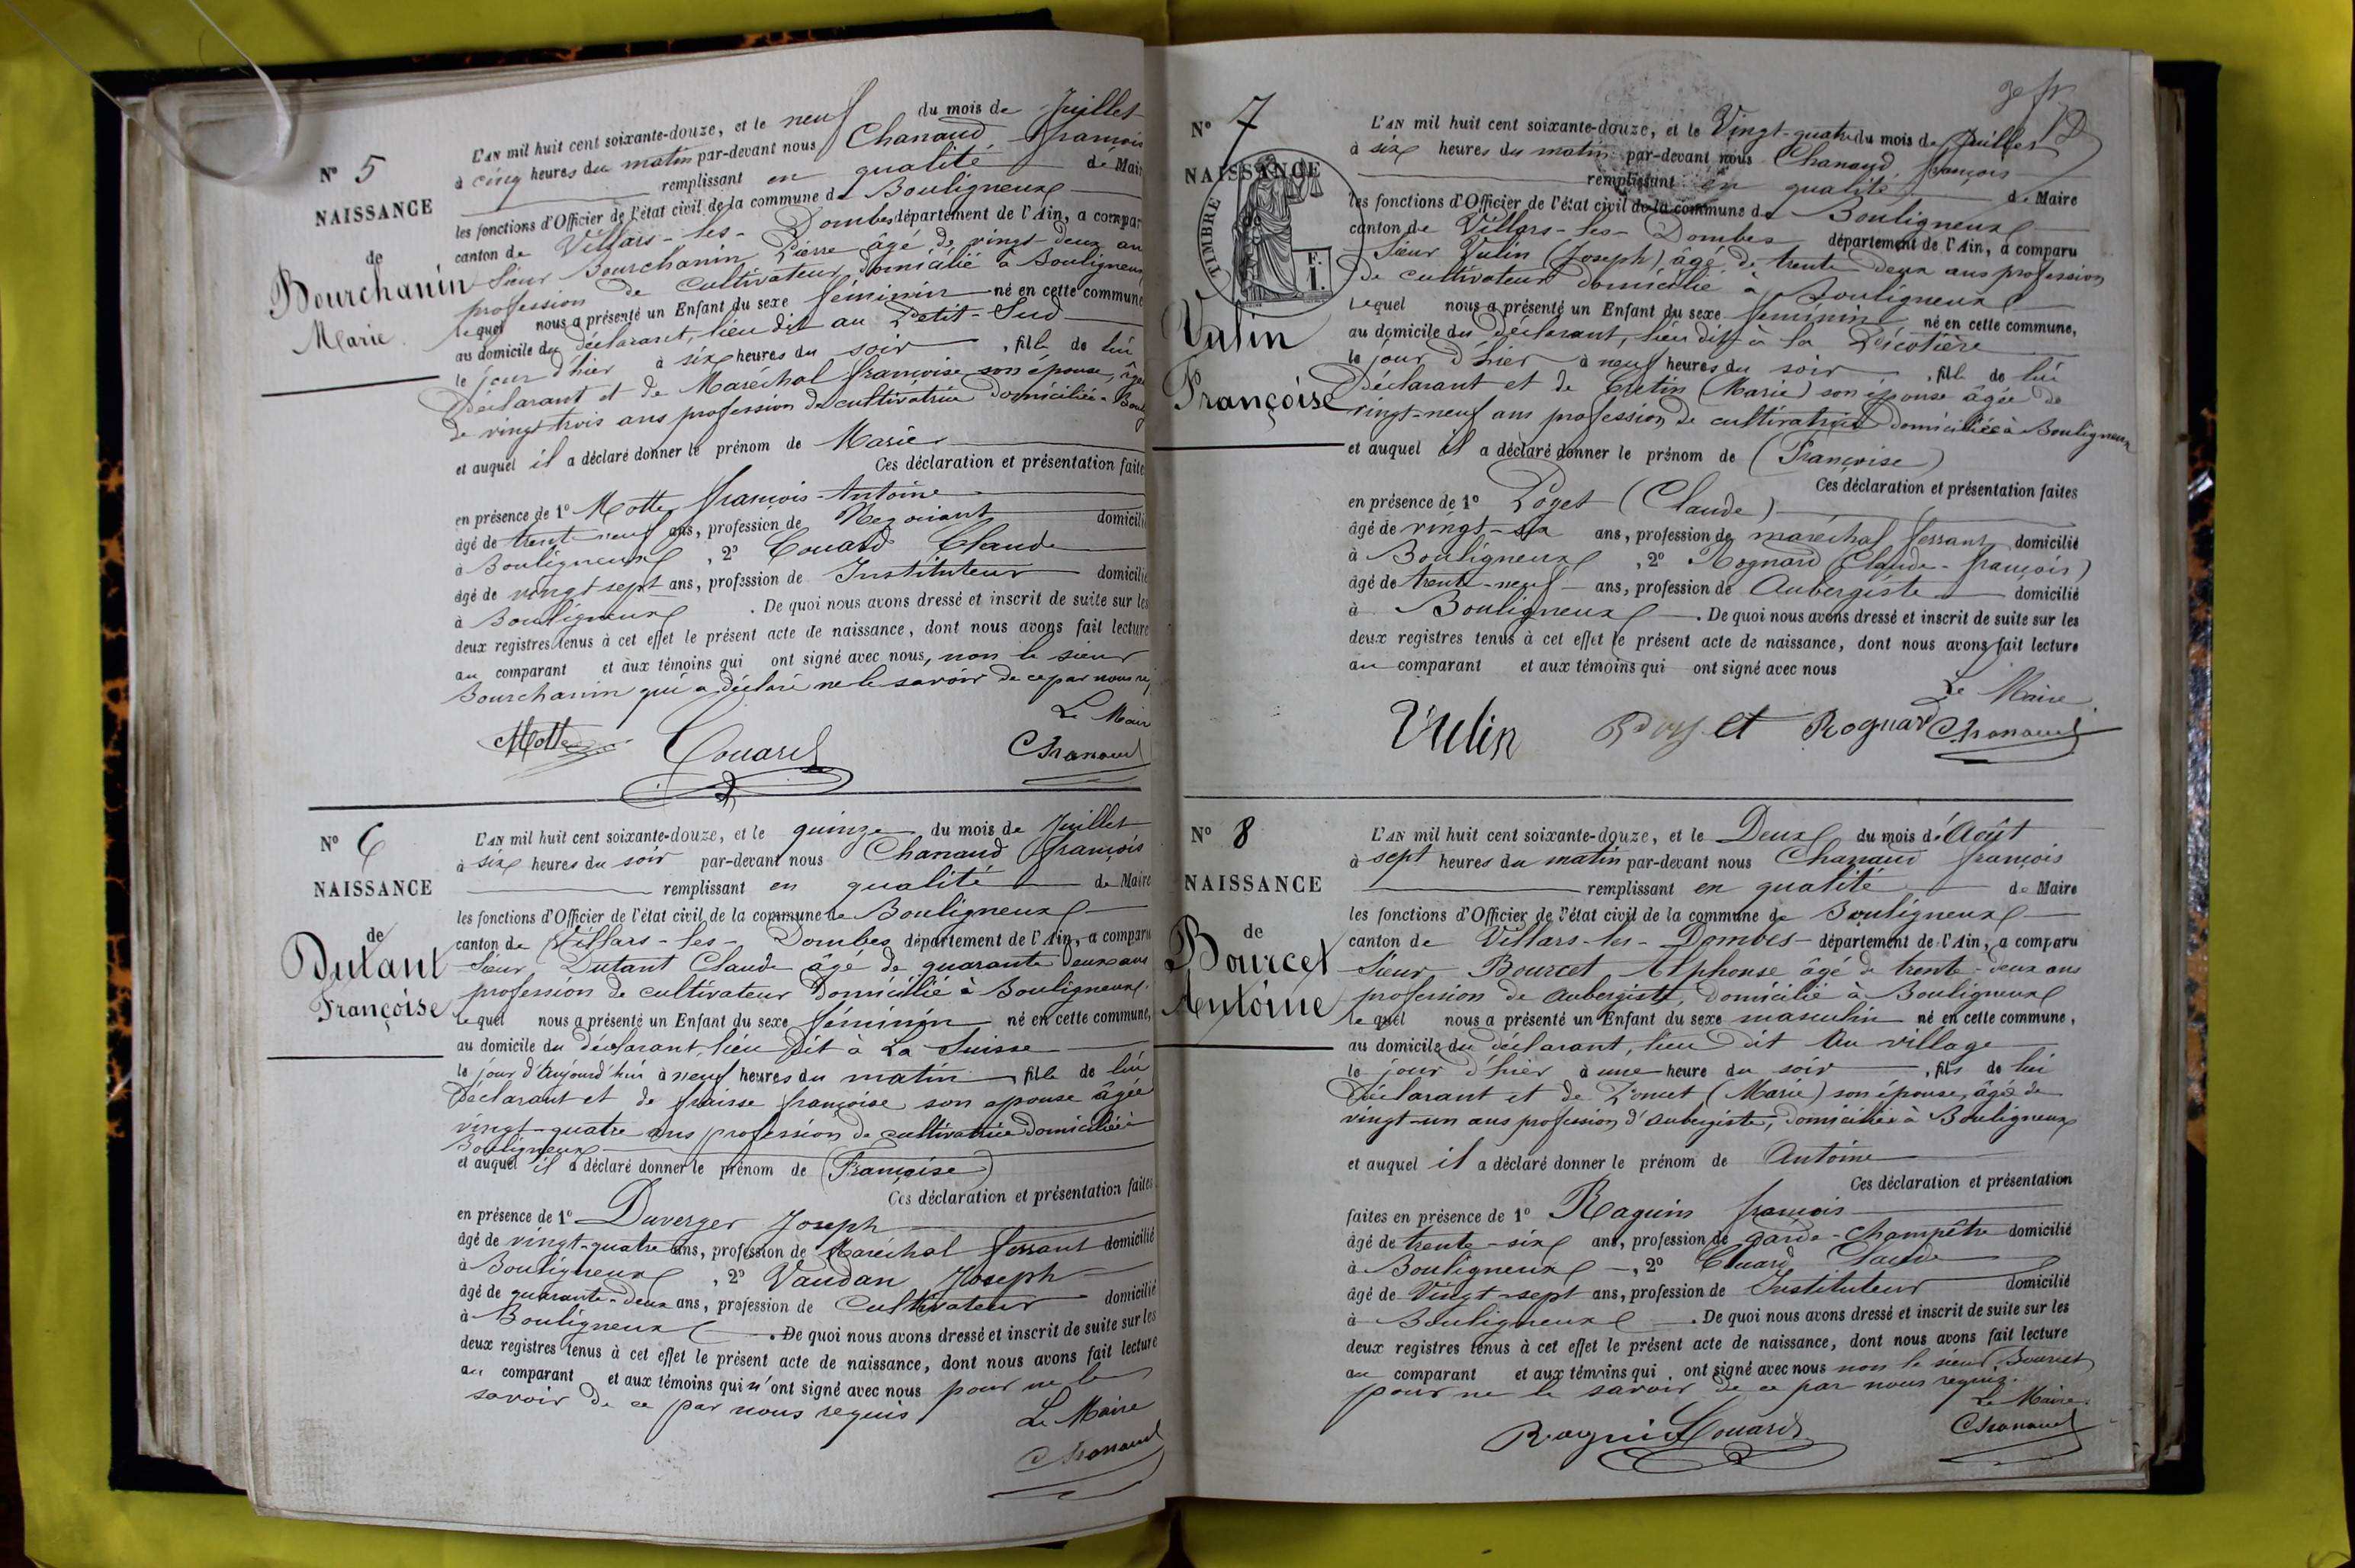 N° 5
NAISSANCE
de
Bourchanin
Marie
L'AN mil huit cent soixante-douze, et le neuf du mois de Juillet
à cinq heures du matin par-devant nous Chanaud François
remplissant en qualité de Mair
les fonctions d'Officier de l'état civil de la commune de Bouligneux
canton de Villars-les-Dombes département de l'Ain, a compar
Sieur Bourchanin Pierre âgé de vingt-deux an
profession de cultivateur, domicilié à Bouligneux
lequel nous a présenté un Enfant du sexe féminin né en cette commune
au domicile du déclarant, lieu dit au Petit-Sud
le jour d'hier à six heures du soir, fille de lui
Déclarant et de Maréchal françoise son épouse, âgée
de vingt trois ans profession de cultivatrice domiciliée à Boulig
et auquel il a déclaré donner le prénom de Marie
Ces déclaration et présentation faite
en présence de 1° Motte françois-Antoine
âgé de trente neuf ans, profession de Négociant domicilié
à Bouligneux, 2° Couard Claude
âgé de vingt sept ans, profession de Instituteur domicilié
à Bouligneux. De quoi nous avons dressé et inscrit de suite sur les
deux registres tenus à cet effet le présent acte de naissance, dont nous avons fait lecture
au comparant et aux témoins qui ont signé avec nous, non le sieur
Bourchanin qui a déclaré ne le savoir de ce par nous re
Le Mair
Motte Couard Chanaud
N° 6
NAISSANCE
de
Dutant
Françoise
L'AN mil huit cent soixante-douze, et le quinze du mois de Juillet
à six heures du soir par-devant nous Chanaud François
remplissant en qualité de Maire
les fonctions d'Officier de l'état civil de la commune de Bouligneux
canton de Villars-les-Dombes département de l'Ain, a comparu
Sieur Dutant Claude âgé de quarante deux ans
profession de cultivateur Domicilié à Bouligneux
lequel nous a présenté un Enfant du sexe féminin né en cette commune,
au domicile du déclarant, lieu dit à La Suisse
le jour d'aujourd'hui à neuf heures du matin, fille de lui
Déclarant et de fraisse françoise son épouse âgée
vingt-quatre ans profession de cultivatrice domiciliée à
Bouligneux
et auquel il a déclaré donner le prénom de (Françoise)
Ces déclaration et présentation faites
en présence de 1° Duverger Joseph
âgé de vingt-quatre ans, profession de Maréchal ferrant domicilié
à Bouligneux, 2° Vaudan Joseph
âgé de quarante-deux ans, profession de Cultivateur domicilié
à Bouligneux. De quoi nous avons dressé et inscrit de suite sur les
deux registres tenus à cet effet le présent acte de naissance, dont nous avons fait lecture
au comparant et aux témoins qui n'ont signé avec nous pour ne le
savoir de ce par nous requis
Le Maire
Chanaud
N° 7
NAISSANCE
TIMBRE
F.
1.
Vulin
Françoise
L'AN mil huit cent soixante-douze, et le Vingt-quatre du mois de Juillet
à six heures du matin par-devant nous Chanaud françois
remplissant en qualité de Maire
les fonctions d'Officier de l'état civil de la commune de Bouligneux
canton de Villars-les-Dombes département de l'Ain, a comparu
Sieur Vulin (Joseph) âgé de trente deux ans profession
de cultivateur domicilié à Bouligneux
lequel nous a présenté un Enfant du sexe féminin né en cette commune,
au domicile du déclarant, lieu dit à la Picotière
le jour d'hier à neuf heures du soir, fille de lui
Déclarant et de Cretin (Marie) son épouse âgée de
vingt-neuf ans profession de cultivatrice domiciliée à Bouligneux
et auquel il a déclaré donner le prénom de (Françoise)
Ces déclaration et présentation faites
en présence de 1° Poget (Claude)
âgé de vingt-six ans, profession de maréchal ferrant domicilié
à Bouligneux, 2° Rognard (Claude-françois)
âgé de trente-neuf ans, profession de Aubergiste domicilié
à Bouligneux. De quoi nous avons dressé et inscrit de suite sur les
deux registres tenus à cet effet le présent acte de naissance, dont nous avons fait lecture
au comparant et aux témoins qui ont signé avec nous
Le Maire
Vulin Poget Rognard Chanaud
N° 8
NAISSANCE
de
Bourcet
Antoine
L'AN mil huit cent soixante-douze, et le Deux du mois d'Août
à sept heures du matin par-devant nous Chanaud françois
remplissant en qualité de Maire
les fonctions d'Officier de l'état civil de la commune de Bouligneux
canton de Villars-les-Dombes département de l'Ain, a comparu
Sieur Bourcet Alphonse âgé de trente-deux ans
profession de Aubergiste, domicilié à Bouligneux
lequel nous a présenté un Enfant du sexe masculin né en cette commune,
au domicile du déclarant, lieu dit Au village
le jour d'hier à une heure du soir, fils de lui
Déclarant et de Poncet (Marie) son épouse, âgée de
vingt-un ans profession d'aubergiste, domiciliée à Bouligneux
et auquel il a déclaré donner le prénom de Antoine
Ces déclaration et présentation
faites en présence de 1° Raguin françois
âgé de trente-six ans, profession de garde-champêtre domicilié
à Bouligneux, 2° Couard Claude
âgé de Vingt-sept ans, profession de Instituteur domicilié
à Bouligneux. De quoi nous avons dressé et inscrit de suite sur les
deux registres tenus à cet effet le présent acte de naissance, dont nous avons fait lecture
au comparant et aux témoins qui ont signé avec nous non le sieur Bourcet
pour ne le savoir de ce par nous requis.
Le Maire
Raguin Couard Chanaud